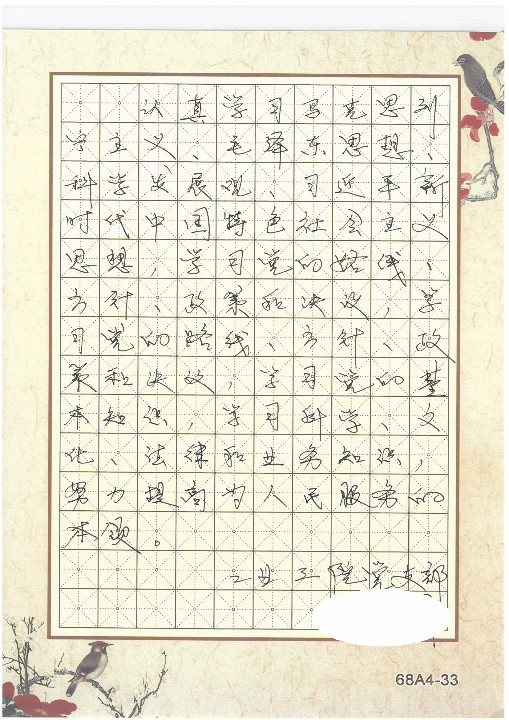 认真学习马克思列
宁主义、毛泽东思想、
科学发展观、习近平新
时代中国特色社会主义
思想,学习党的路线、
方针、政策和决议,学
习党的路线、方针、政
策和决议,学习党的基
本知识,学习科学、文
化、法律和业务知识,
努力提高为人民服务的
本领。
院党支部
68A4-33